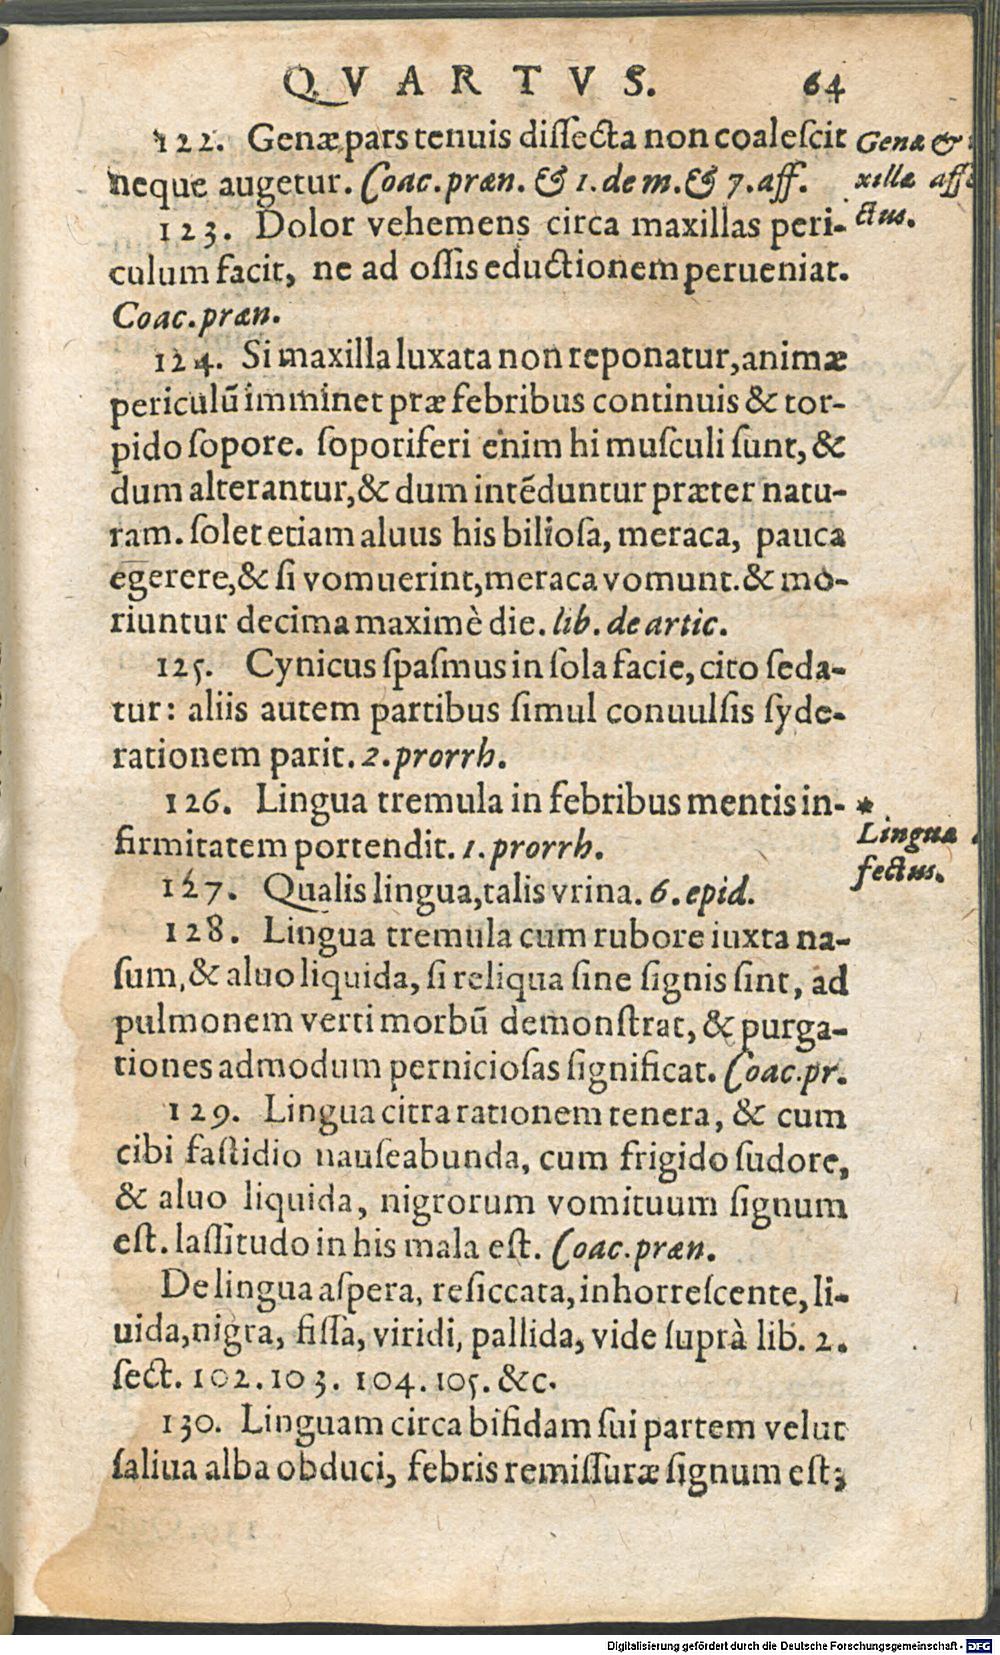 QVARTVS. 64
122. Genæ pars tenuis dissecta non coalescit
neque augetur. Coac. præn. & 1. de m. & 7. aff.
Genæ &
xillæ aff
ctus.
123. Dolor vehemens circa maxillas peri-
culum facit, ne ad ossis eductionem perueniat.
Coac. præn.
124. Si maxilla luxata non reponatur, animæ
periculū imminet præ febribus continuis & tor-
pido sopore. soporiferi enim hi musculi sunt, &
dum alterantur, & dum intēduntur præter natu-
ram. solet etiam aluus his biliosa, meraca, pauca
egerere, & si vomuerint, meraca vomunt. & mo-
riuntur decima maximè die. lib. de artic.
125. Cynicus spasmus in sola facie, cito seda-
tur: aliis autem partibus simul conuulsis syde-
rationem parit. 2. prorrh.
126. Lingua tremula in febribus mentis in-
firmitatem portendit. 1. prorrh.
*
Linguæ
fectus.
127. Qualis lingua, talis vrina. 6. epid.
128. Lingua tremula cum rubore iuxta na-
sum, & aluo liquida, si reliqua sine signis sint, ad
pulmonem verti morbū demonstrat, & purga-
tiones admodum perniciosas significat. Coac. pr.
129. Lingua citra rationem tenera, & cum
cibi fastidio nauseabunda, cum frigido sudore,
& aluo liquida, nigrorum vomituum signum
est. lassitudo in his mala est. Coac. præn.
De lingua aspera, resiccata, inhorrescente, li-
uida, nigra, fissa, viridi, pallida, vide suprà lib. 2.
sect. 102. 103. 104. 105. &c.
130. Linguam circa bifidam sui partem velut
saliua alba obduci, febris remissuræ signum est;
Digitalisierung gefördert durch die Deutsche Forschungsgemeinschaft - DFG